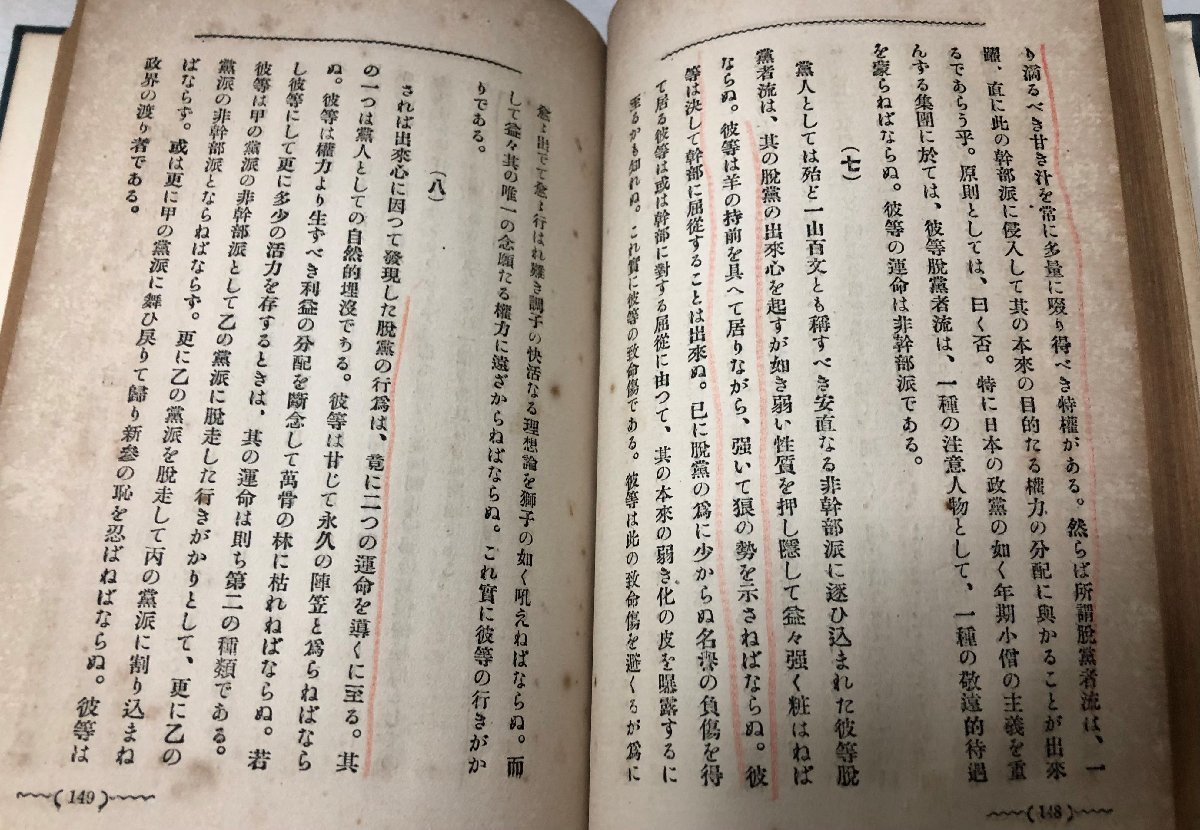 り滴るべき甘き汁を常に多量に啜り得べき特權がある。然らば所謂脱黨者流は、一
躍、直に此の幹部派に侵入して其の本來の目的たる權力の分配に與かることが出來
るであらう乎。原則としては、曰く否。特に日本の政黨の如く年期小僧の主義を重
んする集團に於ては、彼等脱黨者流は、一種の注意人物として、一種の敬遠的待遇
を蒙らねばならぬ。彼等の運命は非幹部派である。
(七)
黨人としては殆ど一山百文とも稱すべき安直なる非幹部派に逐ひ込まれた彼等脱
黨者流は、其の脱黨の出來心を起すが如き弱い性質を押し隱して益々强く粧はねば
ならぬ。彼等は羊の持前を具へて居りながら、强いて狼の勢を示さねばならぬ。彼
等は決して幹部に屈從することは出來ぬ。已に脱黨の爲に少からぬ名譽の負傷を得
て居る彼等は或は幹部に對する屈從に由つて、其の本來の弱き化の皮を曝露するに
至るかも知れぬ。これ實に彼等の致命傷である。彼等は此の致命傷を避くるが爲に
(148)
愈〻出でて愈〻行はれ難き調子の快活なる理想論を獅子の如く吼えねばならぬ。而
して益々其の唯一の念願たる權力に遠ざからねばならぬ。これ實に彼等の行きがか
りである。
(八)
されば出來心に因つて發現した脱黨の行爲は、竟に二つの運命を導くに至る。其
の一つは黨人としての自然的埋沒である。彼等は甘じて永久の陣笠と爲らねばなら
ぬ。彼等は權力より生すべき利益の分配を斷念して萬骨の林に枯れねばならぬ。若
し彼等にして更に多少の活力を存するときは、其の運命は則ち第二の種類である。
彼等は甲の黨派の非幹部派として乙の黨派に脱走した行きがかりとして、更に乙の
黨派の非幹部派とならねばならず。更に乙の黨派を脱走して丙の黨派に割り込まね
ばならず。或は更に甲の黨派に舞ひ戾りて歸り新參の恥を忍ばねばならぬ。彼等は
政界の渡り者である。
(149)